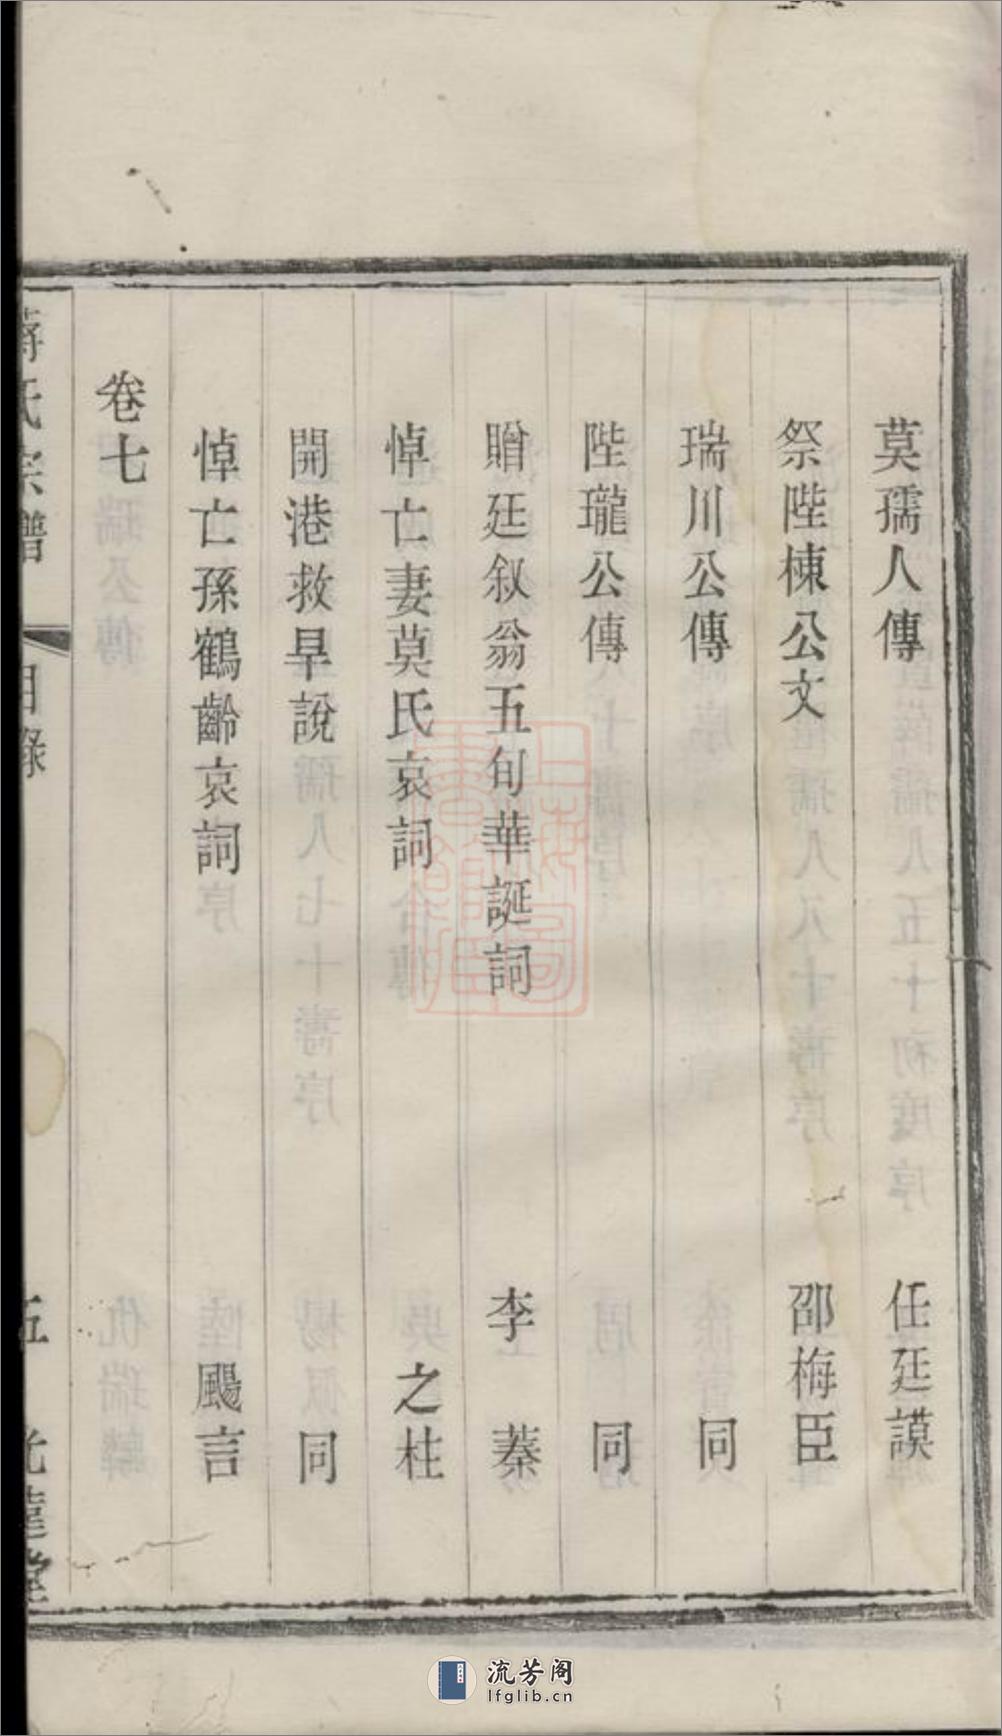 莫孺人傳 任廷謨
祭陛棟公文 邵梅臣
瑞川公傳 同
陛瓏公傳 同
贈廷叙翁五旬華誕詞 李蓁
悼亡妻莫氏哀詞 之柱
開港救旱說 同
悼亡孫鶴齡哀詞 颺言
卷七
蔣氏宗譜 目錄 五
流芳阁
lfglib.cn